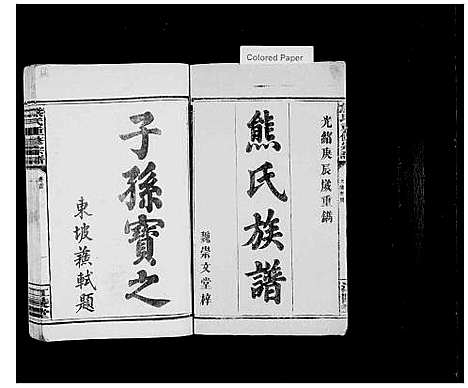 Colored Paper
光緒庚辰歲重鐫
熊氏族譜
崇文堂梓
子孫寶之
東坡蘇軾題